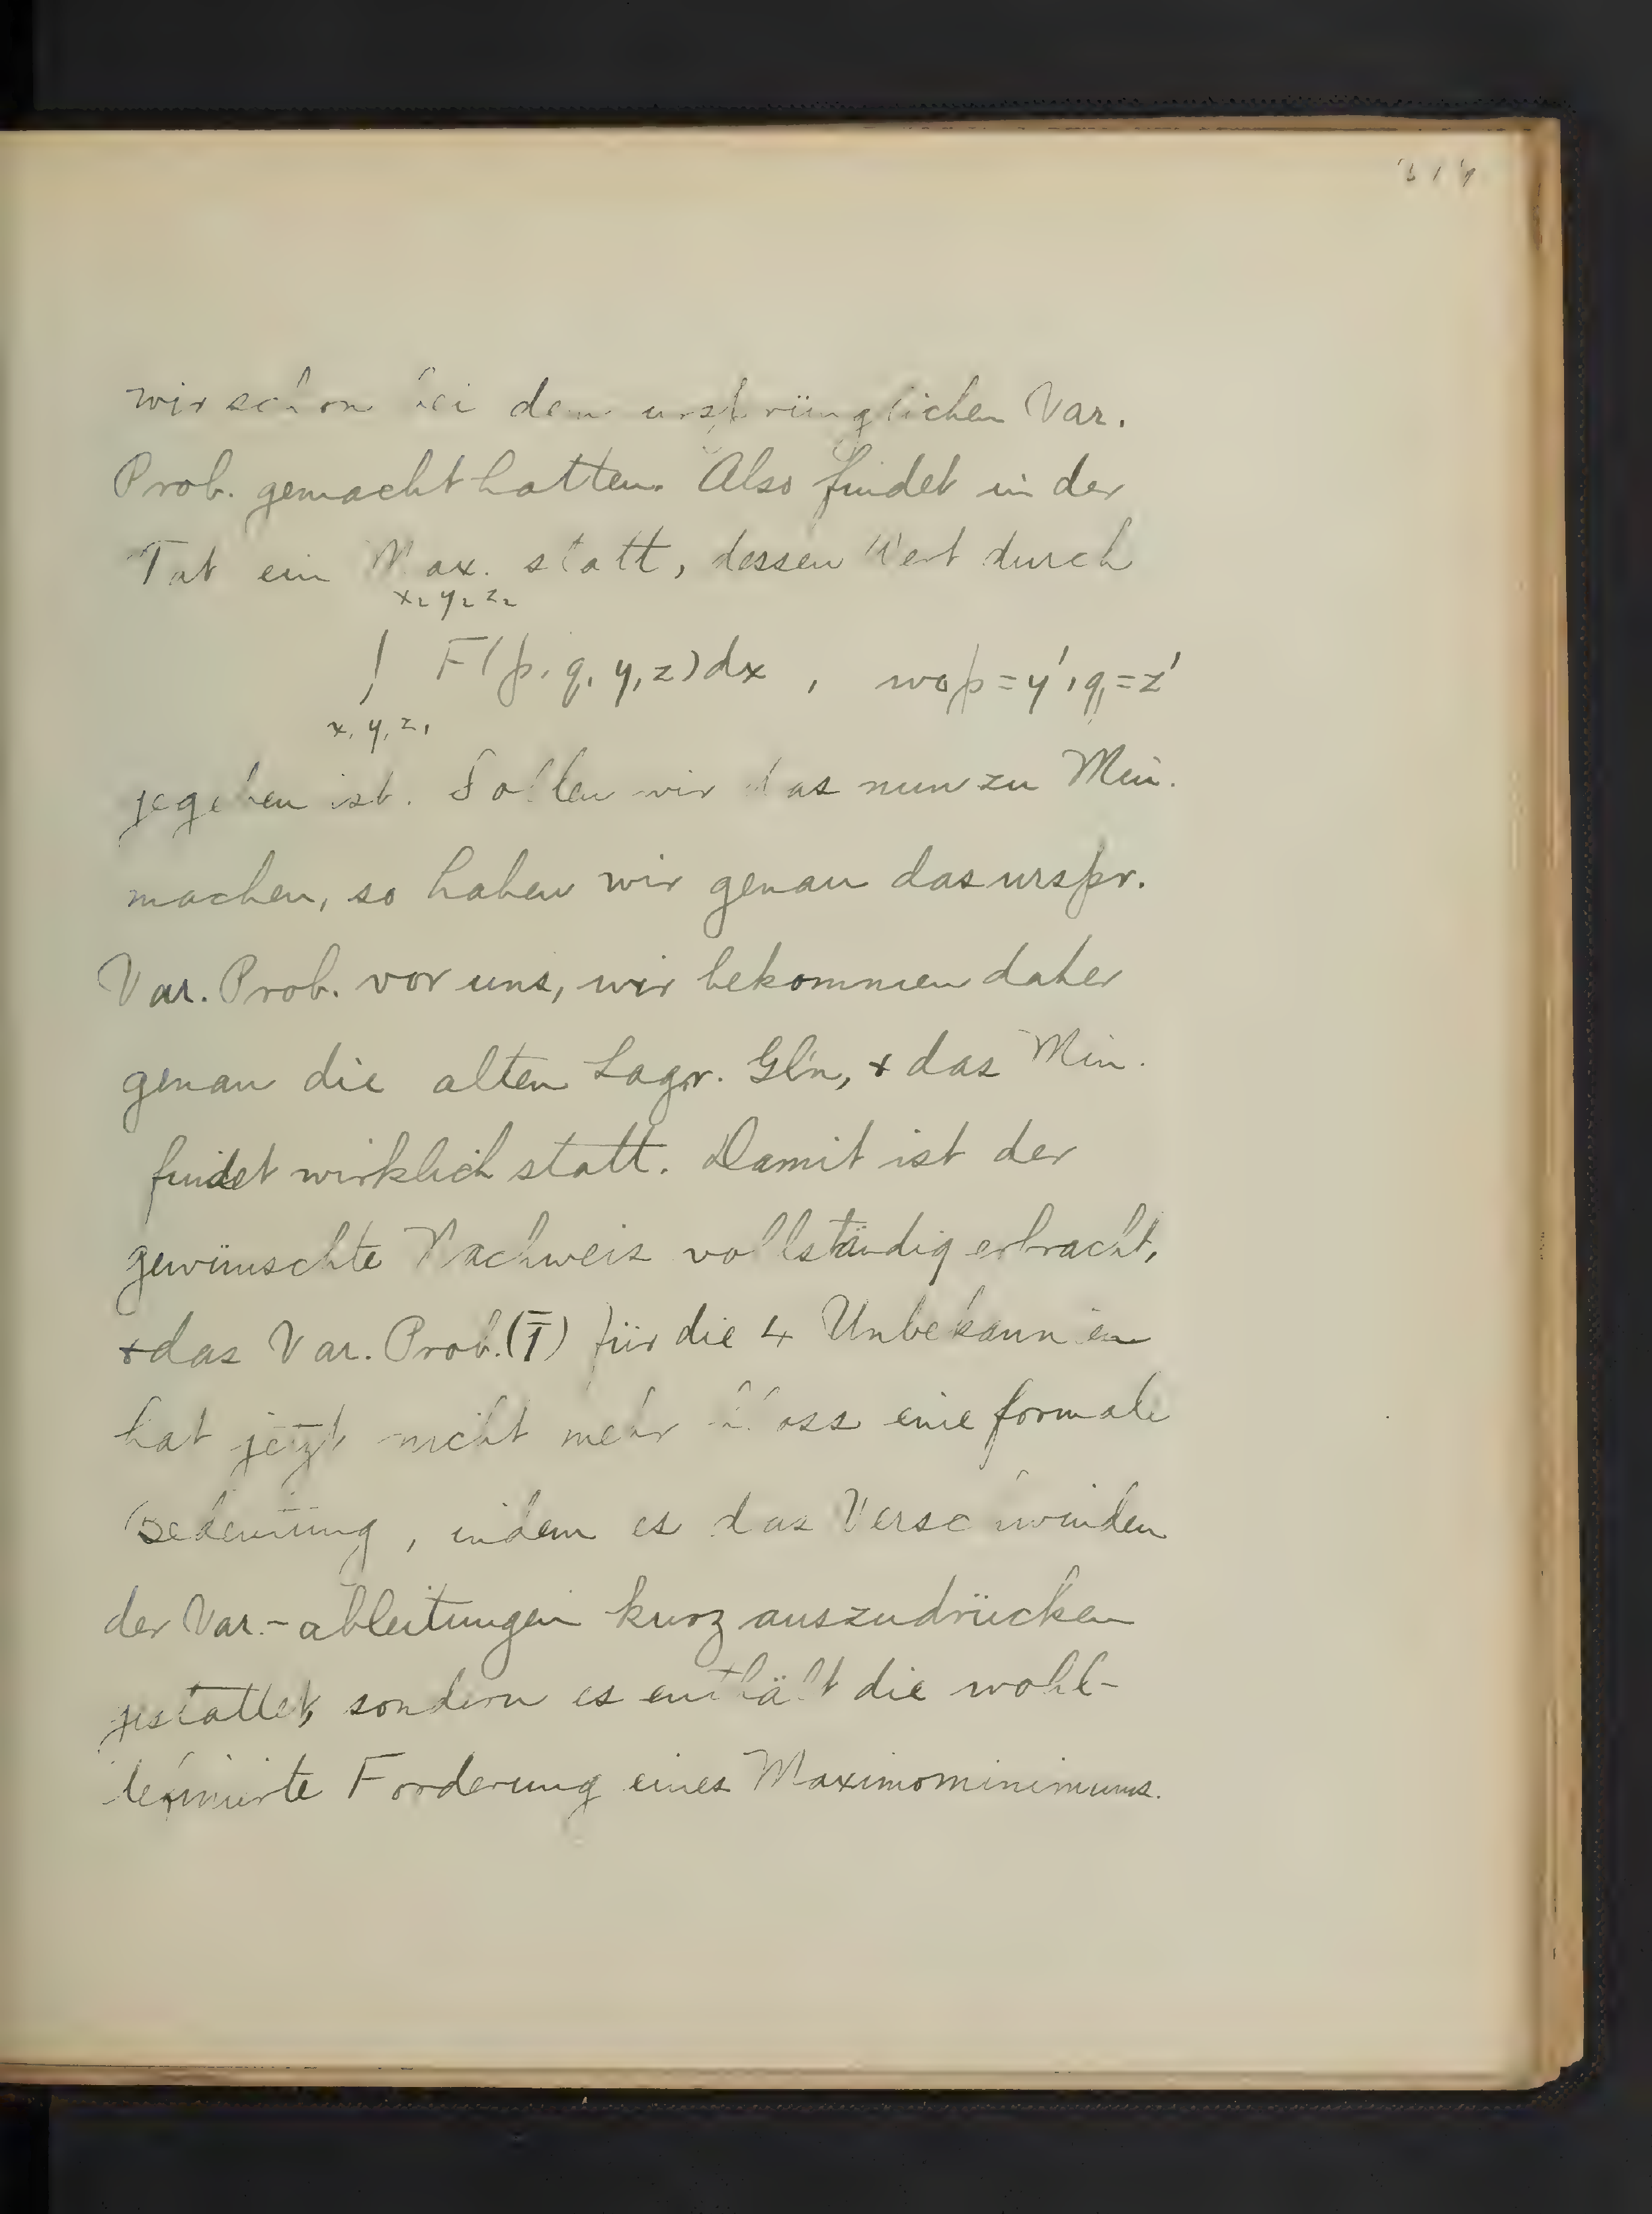 wir schon bei dem ursprünglichen Var.
Prob. gemacht hatten. Also findet in der
Tat ein Max. statt, dessen Wert durch
x₂ y₂ z₂
∫ F(p, q, y, z) dx , wo p = y', q = z'
x₁ y₁ z₁
gegeben ist. Sollen wir das nun zu Min.
machen, so haben wir genau das urspr.
Var. Prob. vor uns, wir bekommen daher
genau die alten Lagr. Gl'n, + das Min.
findet wirklich statt. Damit ist der
gewünschte Nachweis vollständig erbracht,
+ das Var. Prob. (Ī) für die 4 Unbekannten
hat jetzt nicht mehr bloss eine formale
Bedeutung, indem es das Verschwinden
der Var.-ableitungen kurz auszudrücken
gestattet, sondern es enthält die wohl-
definierte Forderung eines Maximominimums.